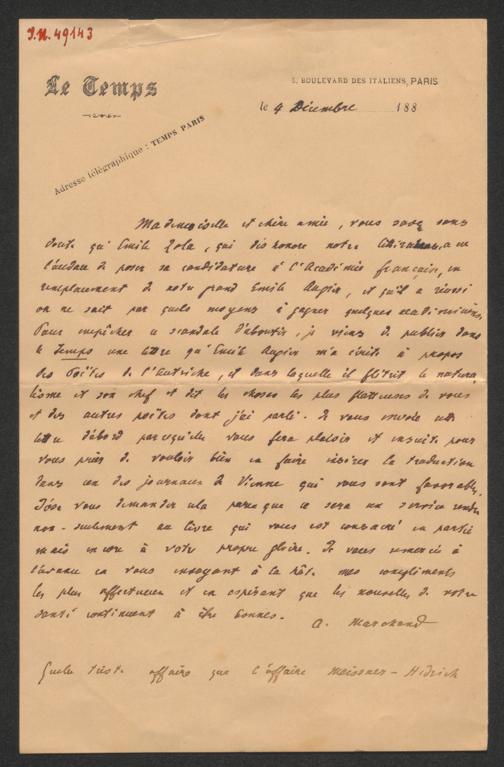 I.N. 49143
Le Temps
5, BOULEVARD DES ITALIENS, PARIS
le 4 Décembre 188
Adresse télégraphique : TEMPS PARIS
Mademoiselle et chère amie, vous savez sans
doute qu'Emile Zola, qui déshonore notre littérature, a eu
l'audace de poser sa candidature à l'Académie française, en
remplacement de notre grand Emile Augier, et qu'il a réussi
on ne sait par quels moyens à gagner quelques académiciens.
Pour empêcher ce scandale d'aboutir, je viens de publier dans
le Temps une lettre qu'Emile Augier m'a écrite à propos
des Poètes de l'Autriche, et dans laquelle il flétrit le natura-
lisme et son chef et dit les choses les plus flatteuses de vous
et des autres poètes dont j'ai parlé. Je vous envoie cette
lettre d'abord parce qu'elle vous fera plaisir et ensuite pour
vous prier de vouloir bien en faire insérer la traduction
dans un des journaux de Vienne qui vous sont favorables.
J'ose vous demander cela parce que ce sera un service rendu
non-seulement au livre qui vous est consacré en partie
mais encore à votre propre gloire. Je vous remercie à
l'avance en vous envoyant à la hâte mes compliments
les plus affectueux et en espérant que les nouvelles de votre
santé continuent à être bonnes.
A. Marchand
Quelle triste affaire que l'affaire Meissner - Hedrich